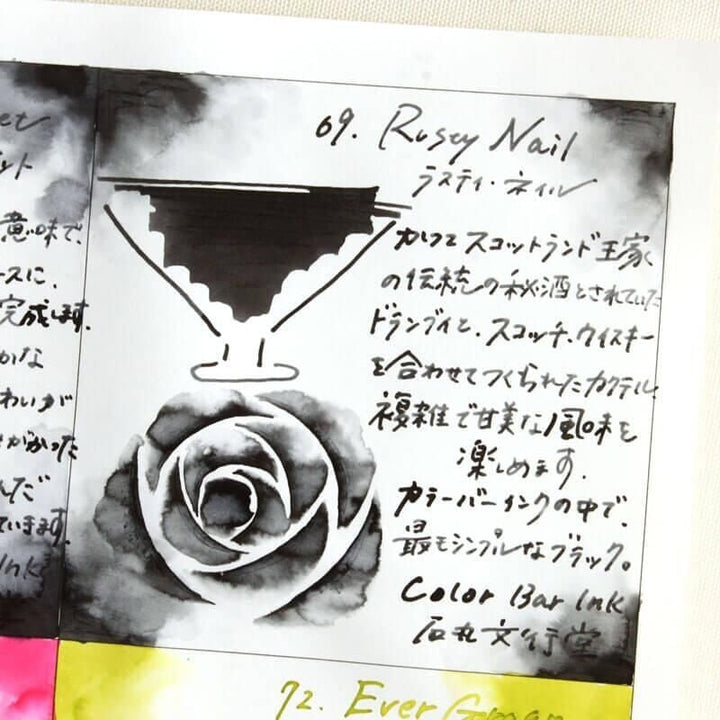 et
ット
意味で、
ースに、
完成します。
かな
わいが
さがかった
んだ
ています。
Ink
69. Rusty Nail
ラスティ・ネイル
かつてスコットランド王家
の伝統の秘酒とされていた
ドランブイと、スコッチ・ウイスキー
を合わせてつくられたカクテル
複雑で甘美な風味を
楽しめます。
カラーバーインクの中で、
最もシンプルなブラック。
Color Bar Ink
石丸文行堂
72. Ever